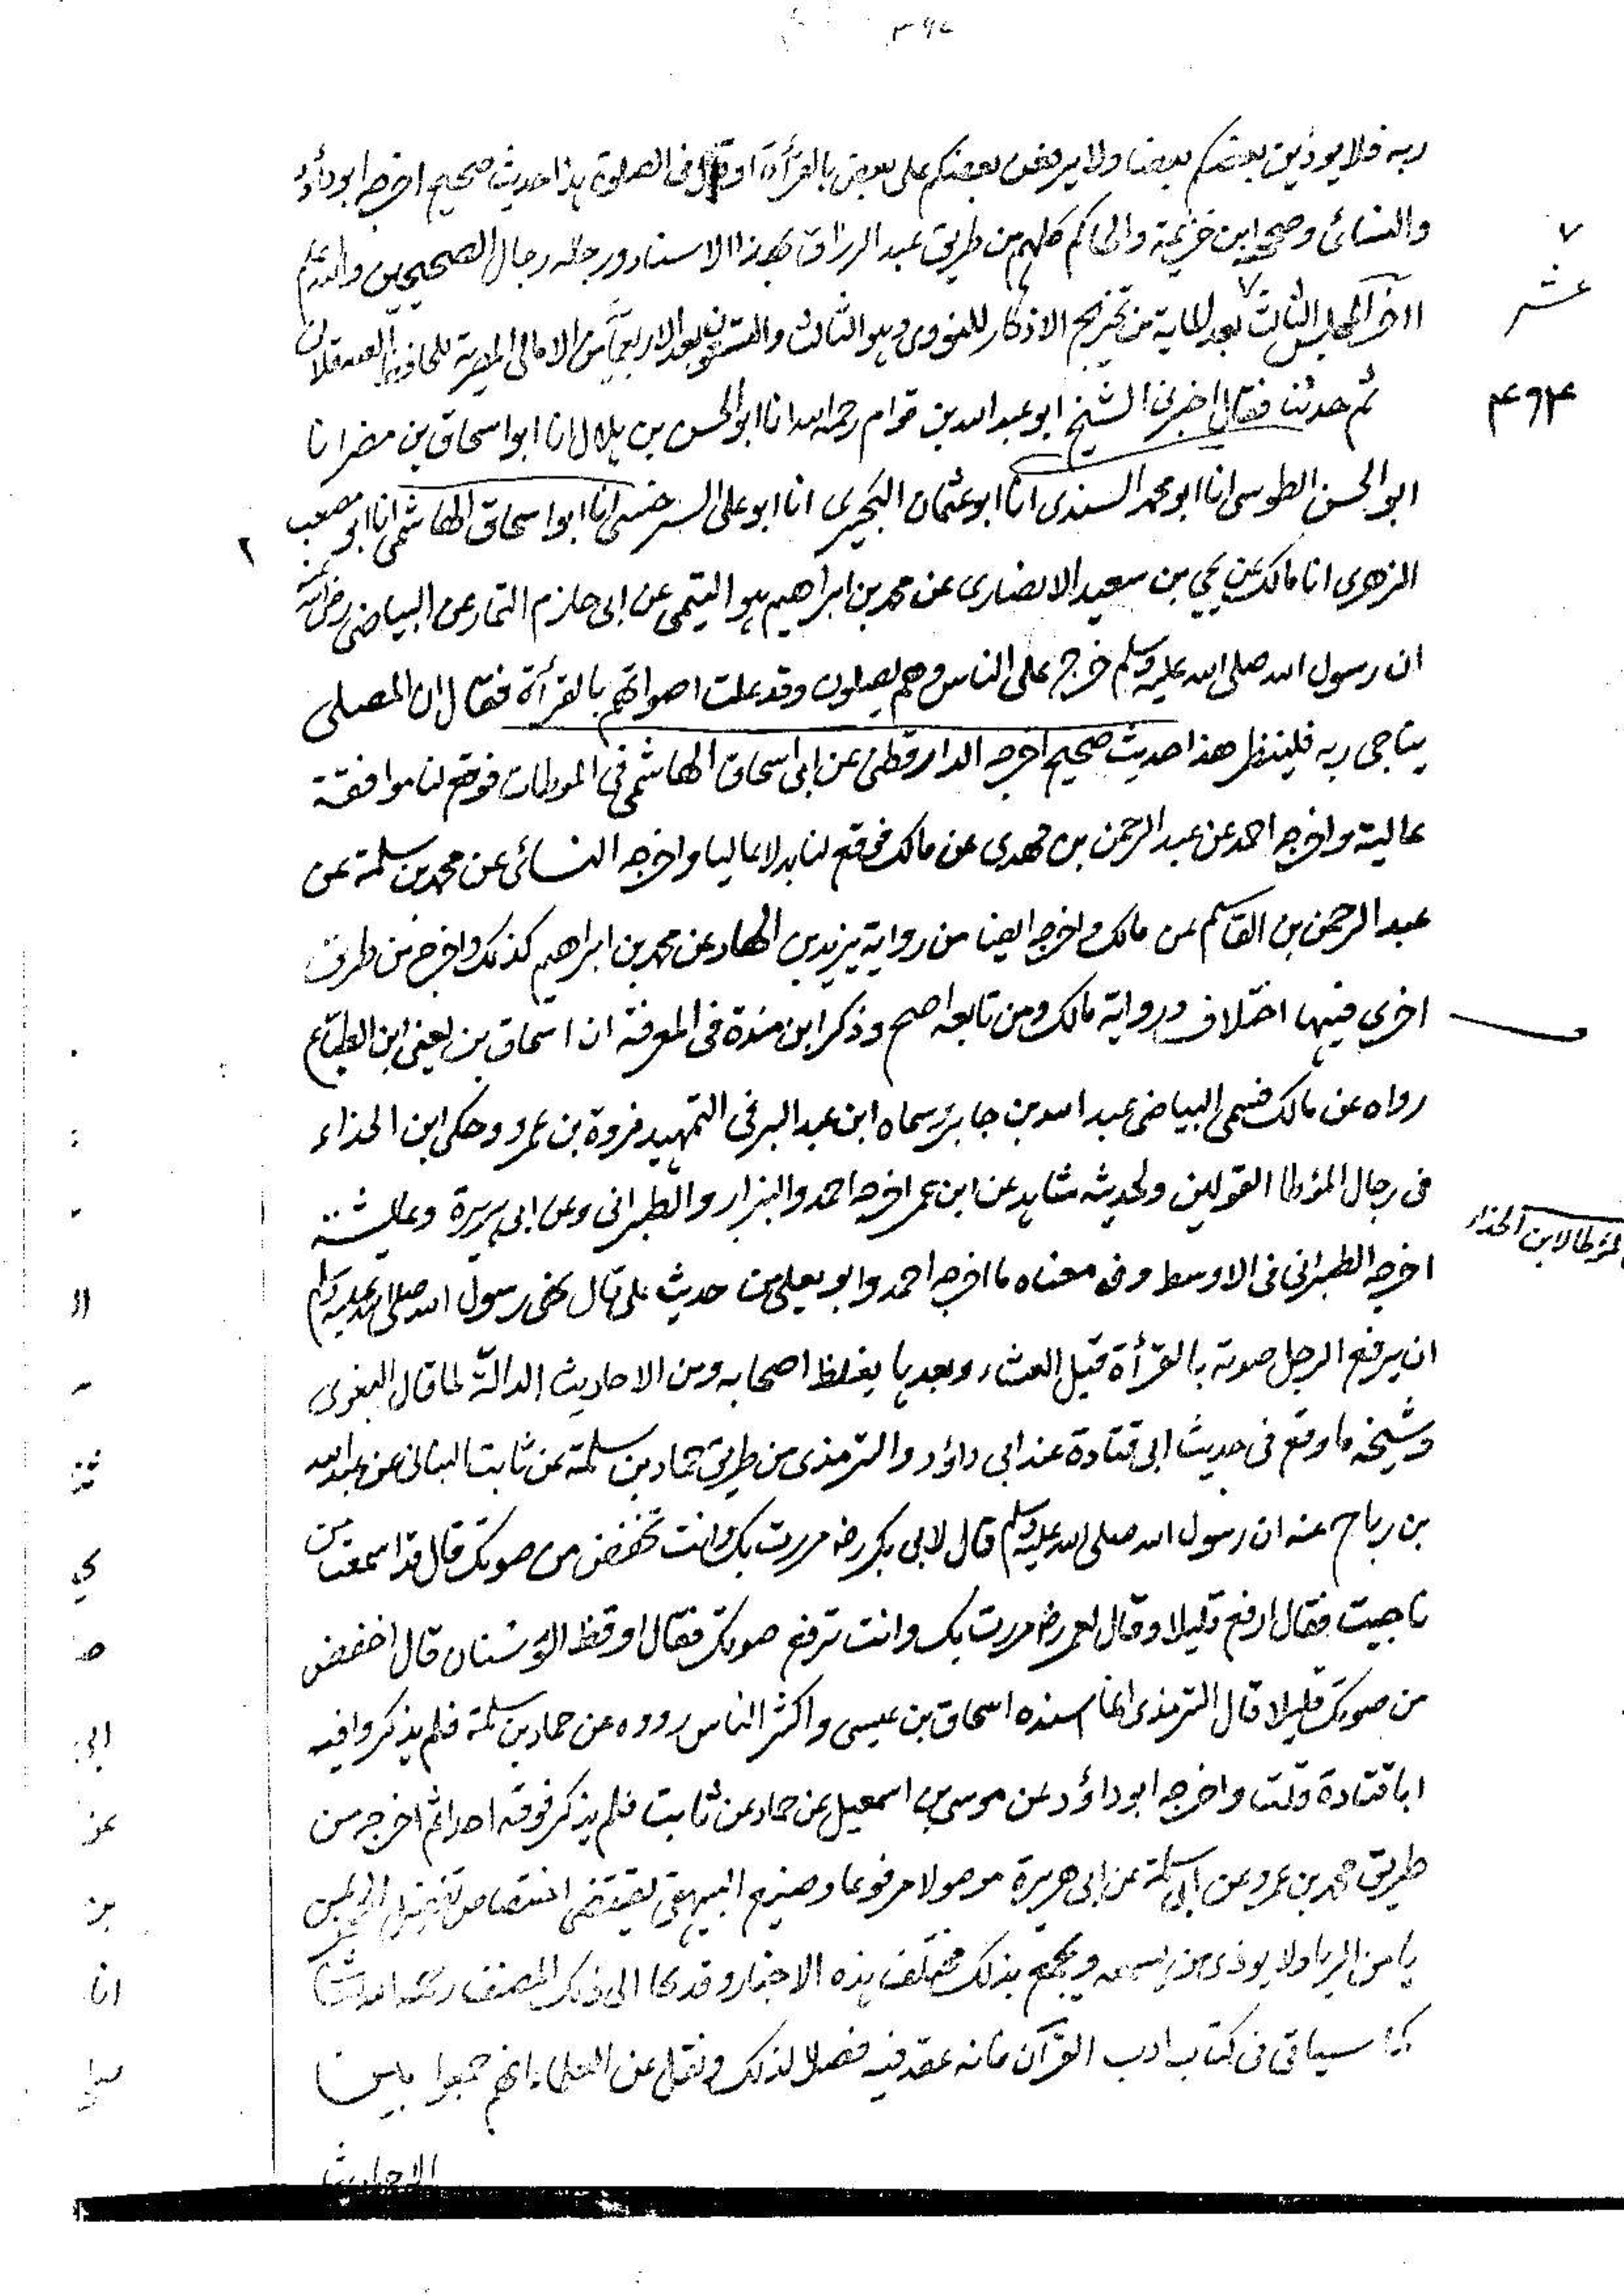 ربه فلا يوذين بعضكم بعضا ولا يرفعن بعضكم على بعض بالقرأة او قال فى الصلوة هذا حديث صحيح اخرجه ابوداؤد
والنسائى وصححه ابن خزيمة والحاكم كلهم من طريق عبد الرزاق بهذا الاسناد ورجاله رجال الصحيحين والله اعلم
اخر المجلس الثالث بعد المايه من تخريج الاذكار للنووى وهو الثالث والتسعون بعد الاربعمأية من الامالى المصرية للحافظ العسقلانى
عشر
٤٩٤
ثم حدثنا فقال اخبرنى الشيخ ابو عبد الله بن قوام رحمه الله انا ابو الحسن بن هلال انا ابو اسحاق بن مضر انا
ابو الحسن الطوسى انا ابو محمد السندى انا ابو عثمان البحيرى انا ابو على السرخسى انا ابو اسحاق الهاشمى انا ابو مصعب
الزهرى انا مالك عن يحي بن سعيد الانصارى عن محمد بن ابراهيم هو التيمى عن ابى حازم التمار عن البياضى رضى الله عنه
ان رسول الله صلى الله عليه وسلم خرج على الناس وهم يصلون وقد علت اصواتهم بالقرأة فقال ان المصلى
يناجى ربه فلينظر هذا حديث صحيح اخرجه الدارقطنى عن ابى اسحاق الهاشمى فى الموطات فوقع لنا موافقة
عالية واخرجه احمد عن عبد الرحمن بن مهدى عن مالك فوقع لنا بدلا عاليا واخرجه النسائى عن محمد بن سلمة عن
عبد الرحمن بن القاسم عن مالك واخرجه ايضا من رواية يزيد بن الهاد عن محمد بن ابراهيم كذلك واخرجه من طريق
اخرى فيها اختلاف ورواية مالك ومن تابعه اصح وذكر ابن مندة فى المعرفة ان اسحاق بن يعنى ابن الطباع
رواه عن مالك فسمى البياضى عبد الله بن جابر وسماه ابن عبد البر فى التمهيد فروة بن عمرو وحكى ابن الحذاء
فى رجال المؤطا القولين ولحديثه شاهد عن ابن عمر اخرجه احمد والبزار والطبرانى وعن ابى هريرة وعايشة
لمؤطا لابن الحذاء
اخرجه الطبرانى فى الاوسط وفى معناه ما اخرجه احمد وابو يعلى من حديث على قال نهى رسول الله صلى الله عليه وسلم
ان يرفع الرجل صوته بالقرأة قبل العشاء وبعدها يغلظ اصحابه ومن الاحاديث الدالة لما قال البغوى
وشيخه ما وقع فى حديث ابى قتادة عند ابى داؤد والترمذى من طريق حماد بن سلمة عن ثابت البنانى عن عبد الله
بن رباح عنه ان رسول الله صلى الله عليه وسلم قال لابى بكر رضه مررت بك وانت تخفض من صوتك قال قد اسمعت من
ناجيت فقال ارفع قليلا وقال لعمر رضه مررت بك وانت ترفع صوتك فقال اوقظ الوسنان قال اخفض
من صوتك قليلا قال الترمذى انما اسنده اسحاق بن عيسى واكثر الناس رووه عن حماد بن سلمة فلم يذكروا فيه
ابا قتادة قلت واخرجه ابوداؤد عن موسى بن اسمعيل عن حماد عن ثابت فلم يذكر فوقه احدا ثم اخرجه من
طريق محمد بن عمرو عن ابى سلمة عن ابى هريرة موصولا مرفوعا وصنيع البيهقى يقتضى اختصاص تفضيل الجهر لمن
يامن الريا ولا يوذى من يسمعه ويجمع بذلك مختلف هذه الاخبار وقد نحا الى ذلك المصنف رحمه الله
كما سياتى فى كتاب ادب القرآن فانه عقد فيه فصلا لذلك ونقل عن العلماء انهم جمعوا بين
الاحاديث